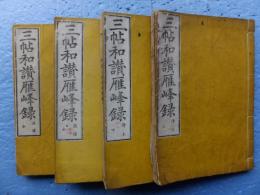 三帖和讃雁峰録
三帖和讃雁峰録
三帖和讃雁峰録
三帖和讃雁峰録